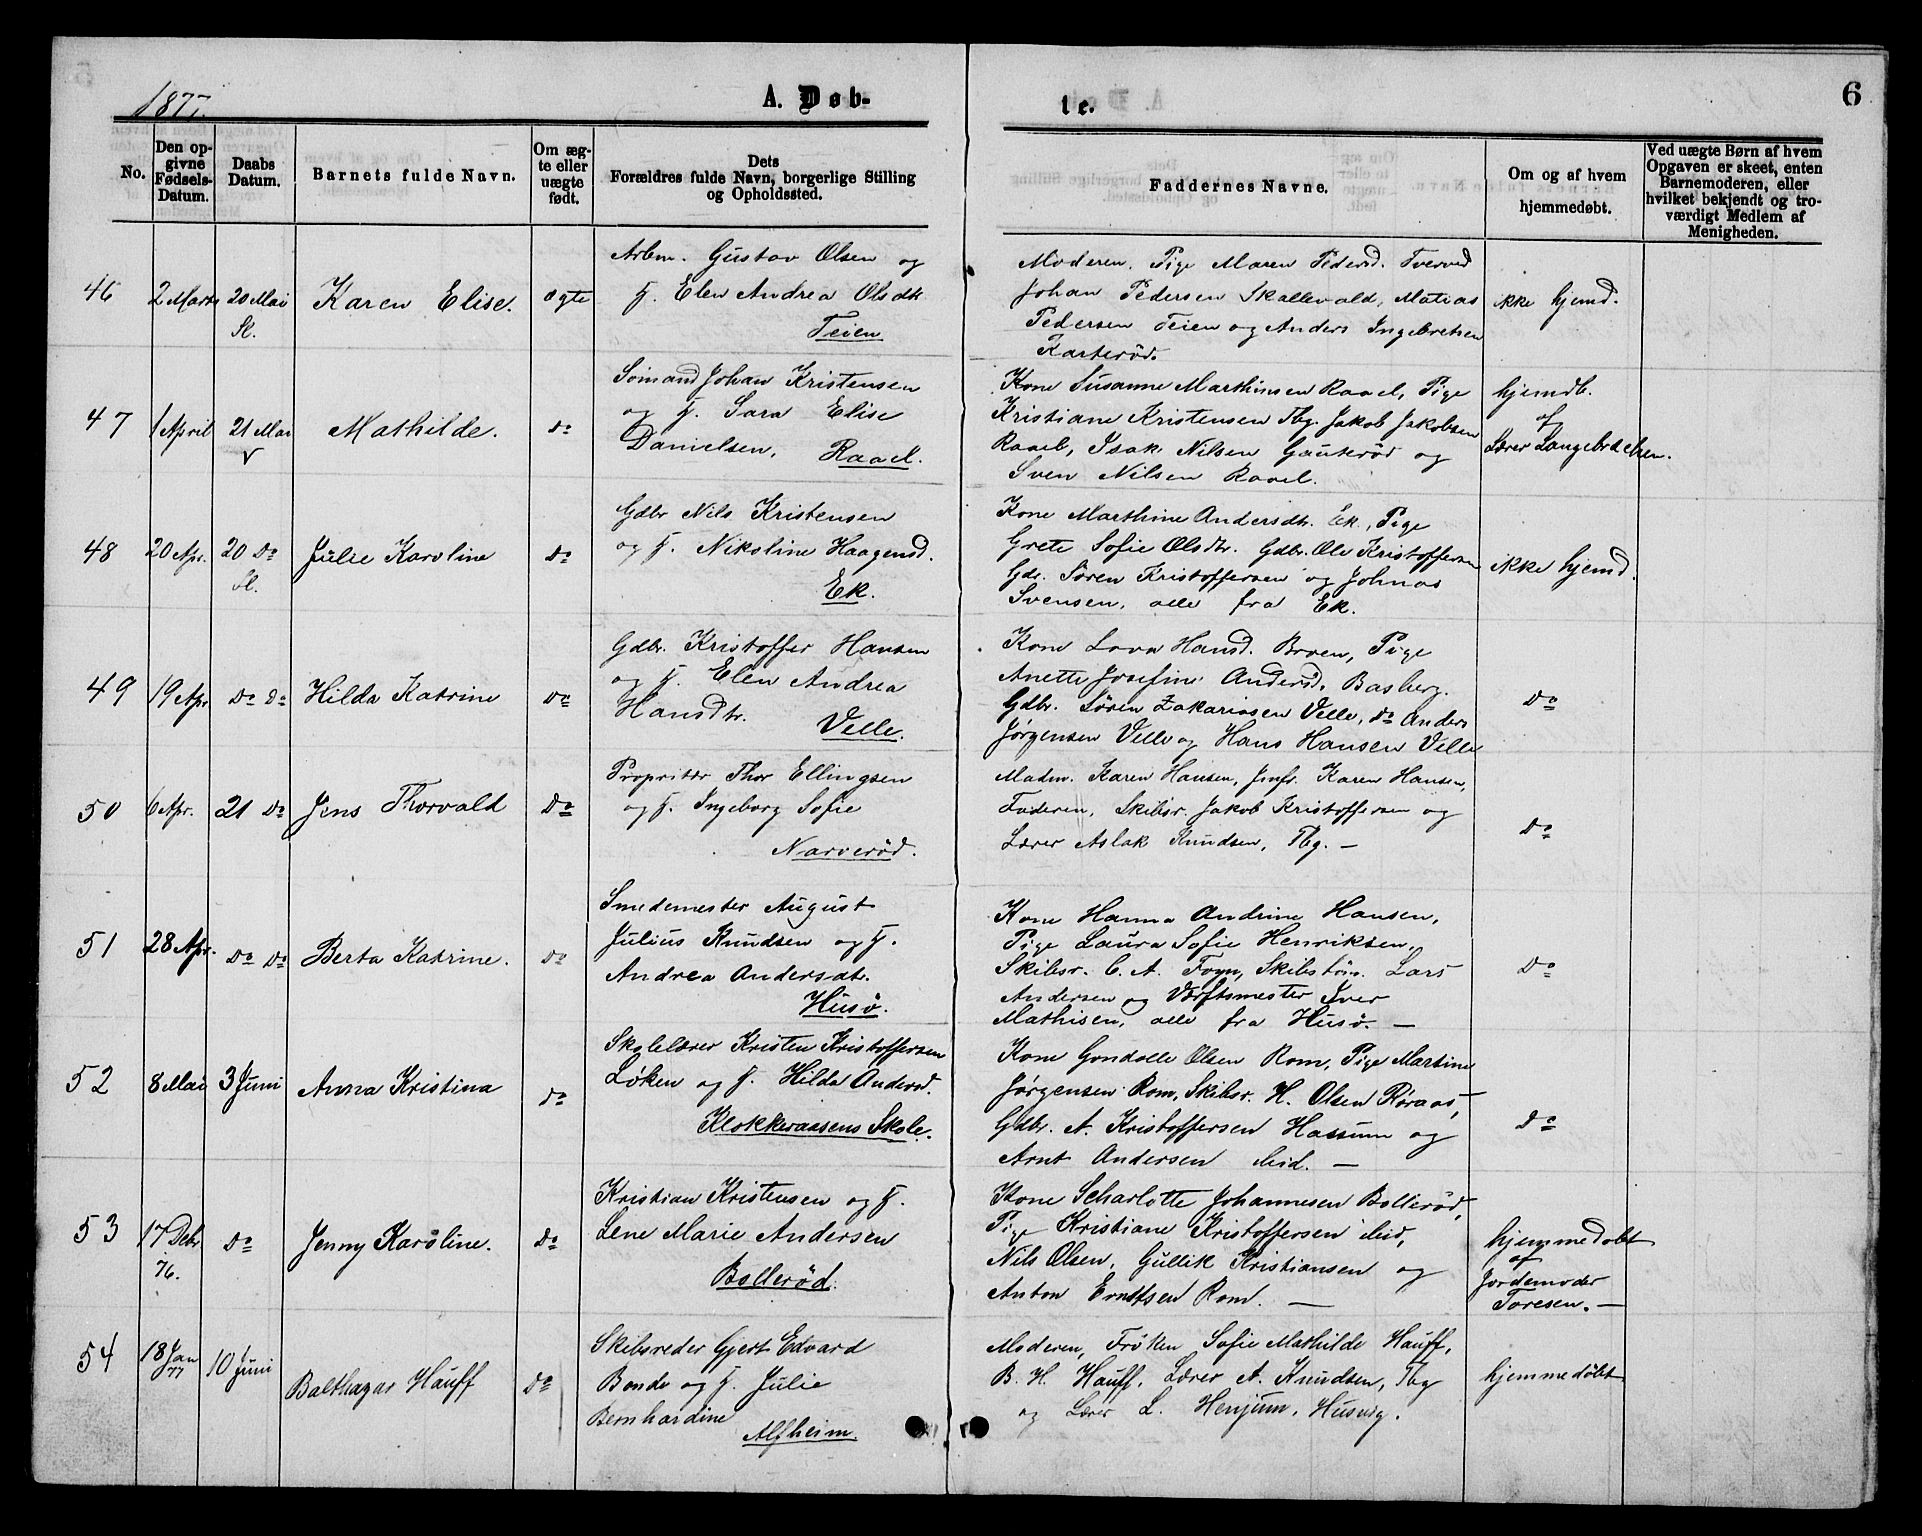 1877.
A. Døb-
te.
6
No.
Den opgivne Fødsels-Datum.
Daabs Datum.
Barnets fulde Navn.
Om ægte eller uægte født.
Dets Forældres fulde Navn, borgerlige Stilling og Opholdssted.
Faddernes Navne.
Om og af hvem hjemmedøbt.
Ved uægte Børn af hvem Opgaven er skeet, enten Barnemoderen, eller hvilket bekjendt og troværdigt Medlem af Menigheden.
46
2 Marts
20 Mai
Sl.
Karen Elise.
ægte
Arbm. Gustav Olsen og
H. Elen Andrea Olsdtr.
Teien
Moderen, Pige Maren Pedersd. Tverved
Johan Pedersen Skallevald, Matias
Pedersen Teien og Anders Ingebretsen
Karterød.
ikke hjemd.
47
1 April
21 Mai
Mathilde.
Do
Sømand Johan Kristensen
og H. Sara Elise
Danielsen, Raael.
Kone Susanne Marthinsen Raael, Pige
Kristiane Kristensen Tbg, Jakob Jakobsen
Raael, Isak Nilsen Gauterød og
Sven Nilsen Raael.
hjemdb.
af
Lærer Langebrækken.
48
20 Apr.
20 Do
Sl.
Julie Karoline
Do
Gdbr Nils Kristensen
og H. Nikoline Haagensd.
Ek.
Kone Marthine Andersdtr. Ek, Pige
Grete Sofie Olsdtr. Gdbr. Ole Kristoffersen
Gdr. Søren Kristoffersen og Johnas
Svensen, alle fra Ek.
ikke hjemd.
49
19 Apr.
Do Do
Hilda Katrine
Do
Gdbr. Kristoffer Hansen
og H. Elen Andrea
Hansdtr. Velle.
Kone Lova Hansd. Broen, Pige
Anette Josefine Andersd. Basberg.
Gdbr. Søren Zakariasen Velle, Do Anders
Jørgensen Velle og Hans Hansen Velle
Do
50
6 Apr.
21 Do
Jens Thorvald
Do
Propritær Thor Ellingsen
og H. Ingeborg Sofie
Narverød.
Madm. Karen Hansen, Jmfr. Karen Hansen,
Faderen, Skibsr. Jakob Kristoffersen og
Lærer Aslak Knudsen, Tbg. —
Do
51
28 Apr.
Do Do
Berta Katrine.
Do
Smedemester August
Julius Knudsen og H.
Andrea Andersdtr.
Husø.
Kone Hanna Andrine Hansen,
Pige Laura Sofie Henriksen,
Skibsr. C. A. Foyn, Skibstøm. Lars
Andersen og Værftsmester Iver
Mathisen, alle fra Husø. —
Do
52
8 Mai
3 Juni
Anna Kristina
Do
Skolelærer Kristen Kristoffersen
Løken og H. Hilda Andersd.
Klokkeraasens Skole.
Kone Gondolle Olsen Rom, Pige Martine
Jørgensen Rom, Skibsr. H. Olsen Røraas,
Gdbr. A. Kristoffersen Hassum og
Arnt Andersen ibid. —
Do
53
17 Debr
76.
Do
Jenny Karoline.
Do
Kristian Kristensen og H.
Lene Marie Andersen
Bollerød.
Kone Scharlotte Johannesen Bollerød,
Pige Kristiane Kristoffersen ibid,
Nils Olsen, Gullik Kristiansen og
Anton Erntsen Rom. —
hjemmedøbt
af
Jordemoder
Toresen. —
54
18 Jan
77
10 Juni
Balthazar Hauff
Do
Skibsreder Gjert Edvard
Bonde og H. Julie
Bernhardine
Alfheim.
Moderen, Frøken Sofie Mathilde Hauff,
B. H. Hauff, Lærer A. Knudsen, Tbg
og Lærer L. Henjum, Husvig.
hjemmedøbt